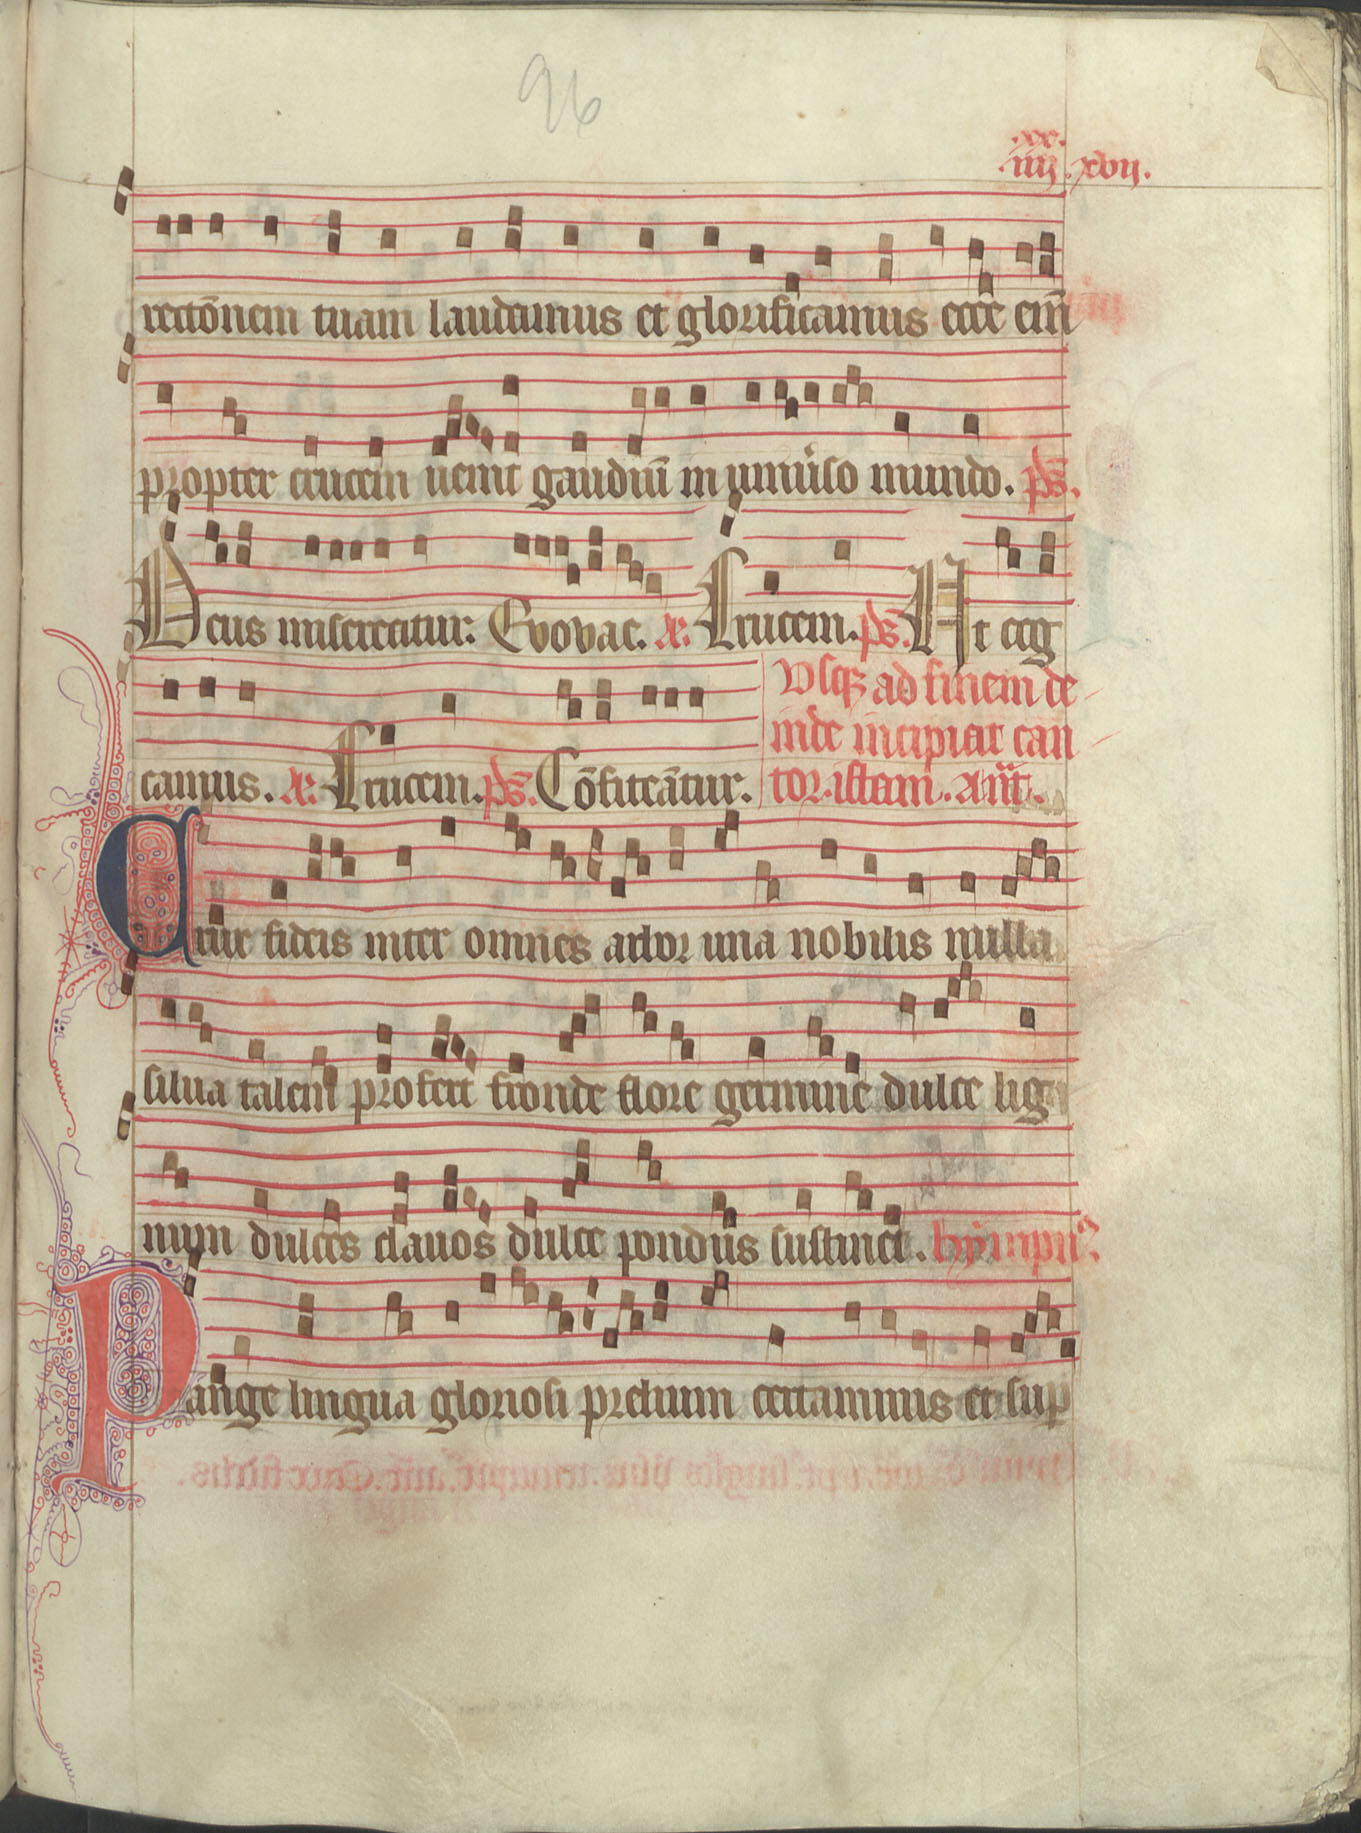 96
.xx.
.iiij. xvij.
rectōnem tuam laudamus et glorificamus ecce eī̄m
propter crucem uenit gaudiū in uniu͛so mundo. ps̄.
Deus misereatur. Evovae. A͛. Crucem. ps̄. Et cog
Usqꝫ ad finem de
inde incipiat can
camus. A͛. Crucem. ps̄. Cōfiteātur. tor istam. añt.
Crux fidelis inter omnes arbor una nobilis nulla
silua talem profert fronde flore germine dulce lig
num dulces clauos dulce pondus sustinet. hȳmpn᷒.
Pange lingua gloriosi prelium certaminis et sup